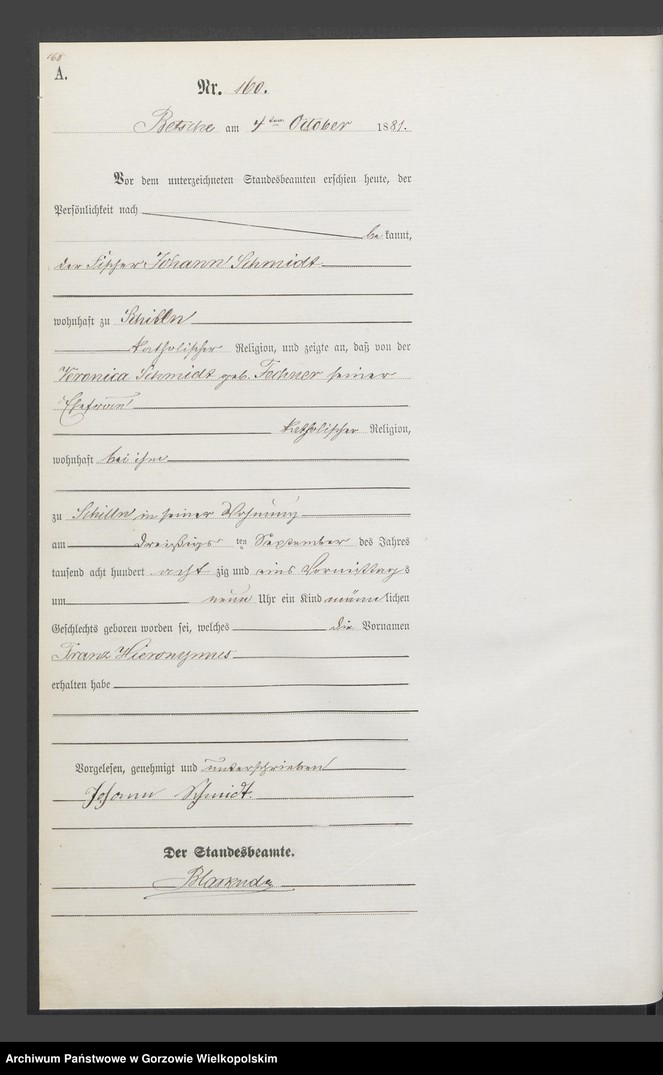 168
A.
Nr. 160.
Betsche am 4ten October 1881.
Vor dem unterzeichneten Standesbeamten erschien heute, der
Persönlichkeit nach
be kannt,
der Fischer Johann Schmidt
wohnhaft zu Schilln
katholischer Religion, und zeigte an, daß von der
Veronica Schmidt geb. Fechner seiner
Ehefrau
katholischer Religion,
wohnhaft bei ihm
zu Schilln in seiner Wohnung
am dreißigs ten September des Jahres
tausend acht hundert acht zig und eins Vormittag s
um neun Uhr ein Kind männ lichen
Geschlechts geboren worden sei, welches die Vornamen
Franz Hieronymus
erhalten habe
Vorgelesen, genehmigt und unterschrieben
Johann Schmidt.
Der Standesbeamte.
Archiwum Państwowe w Gorzowie Wielkopolskim